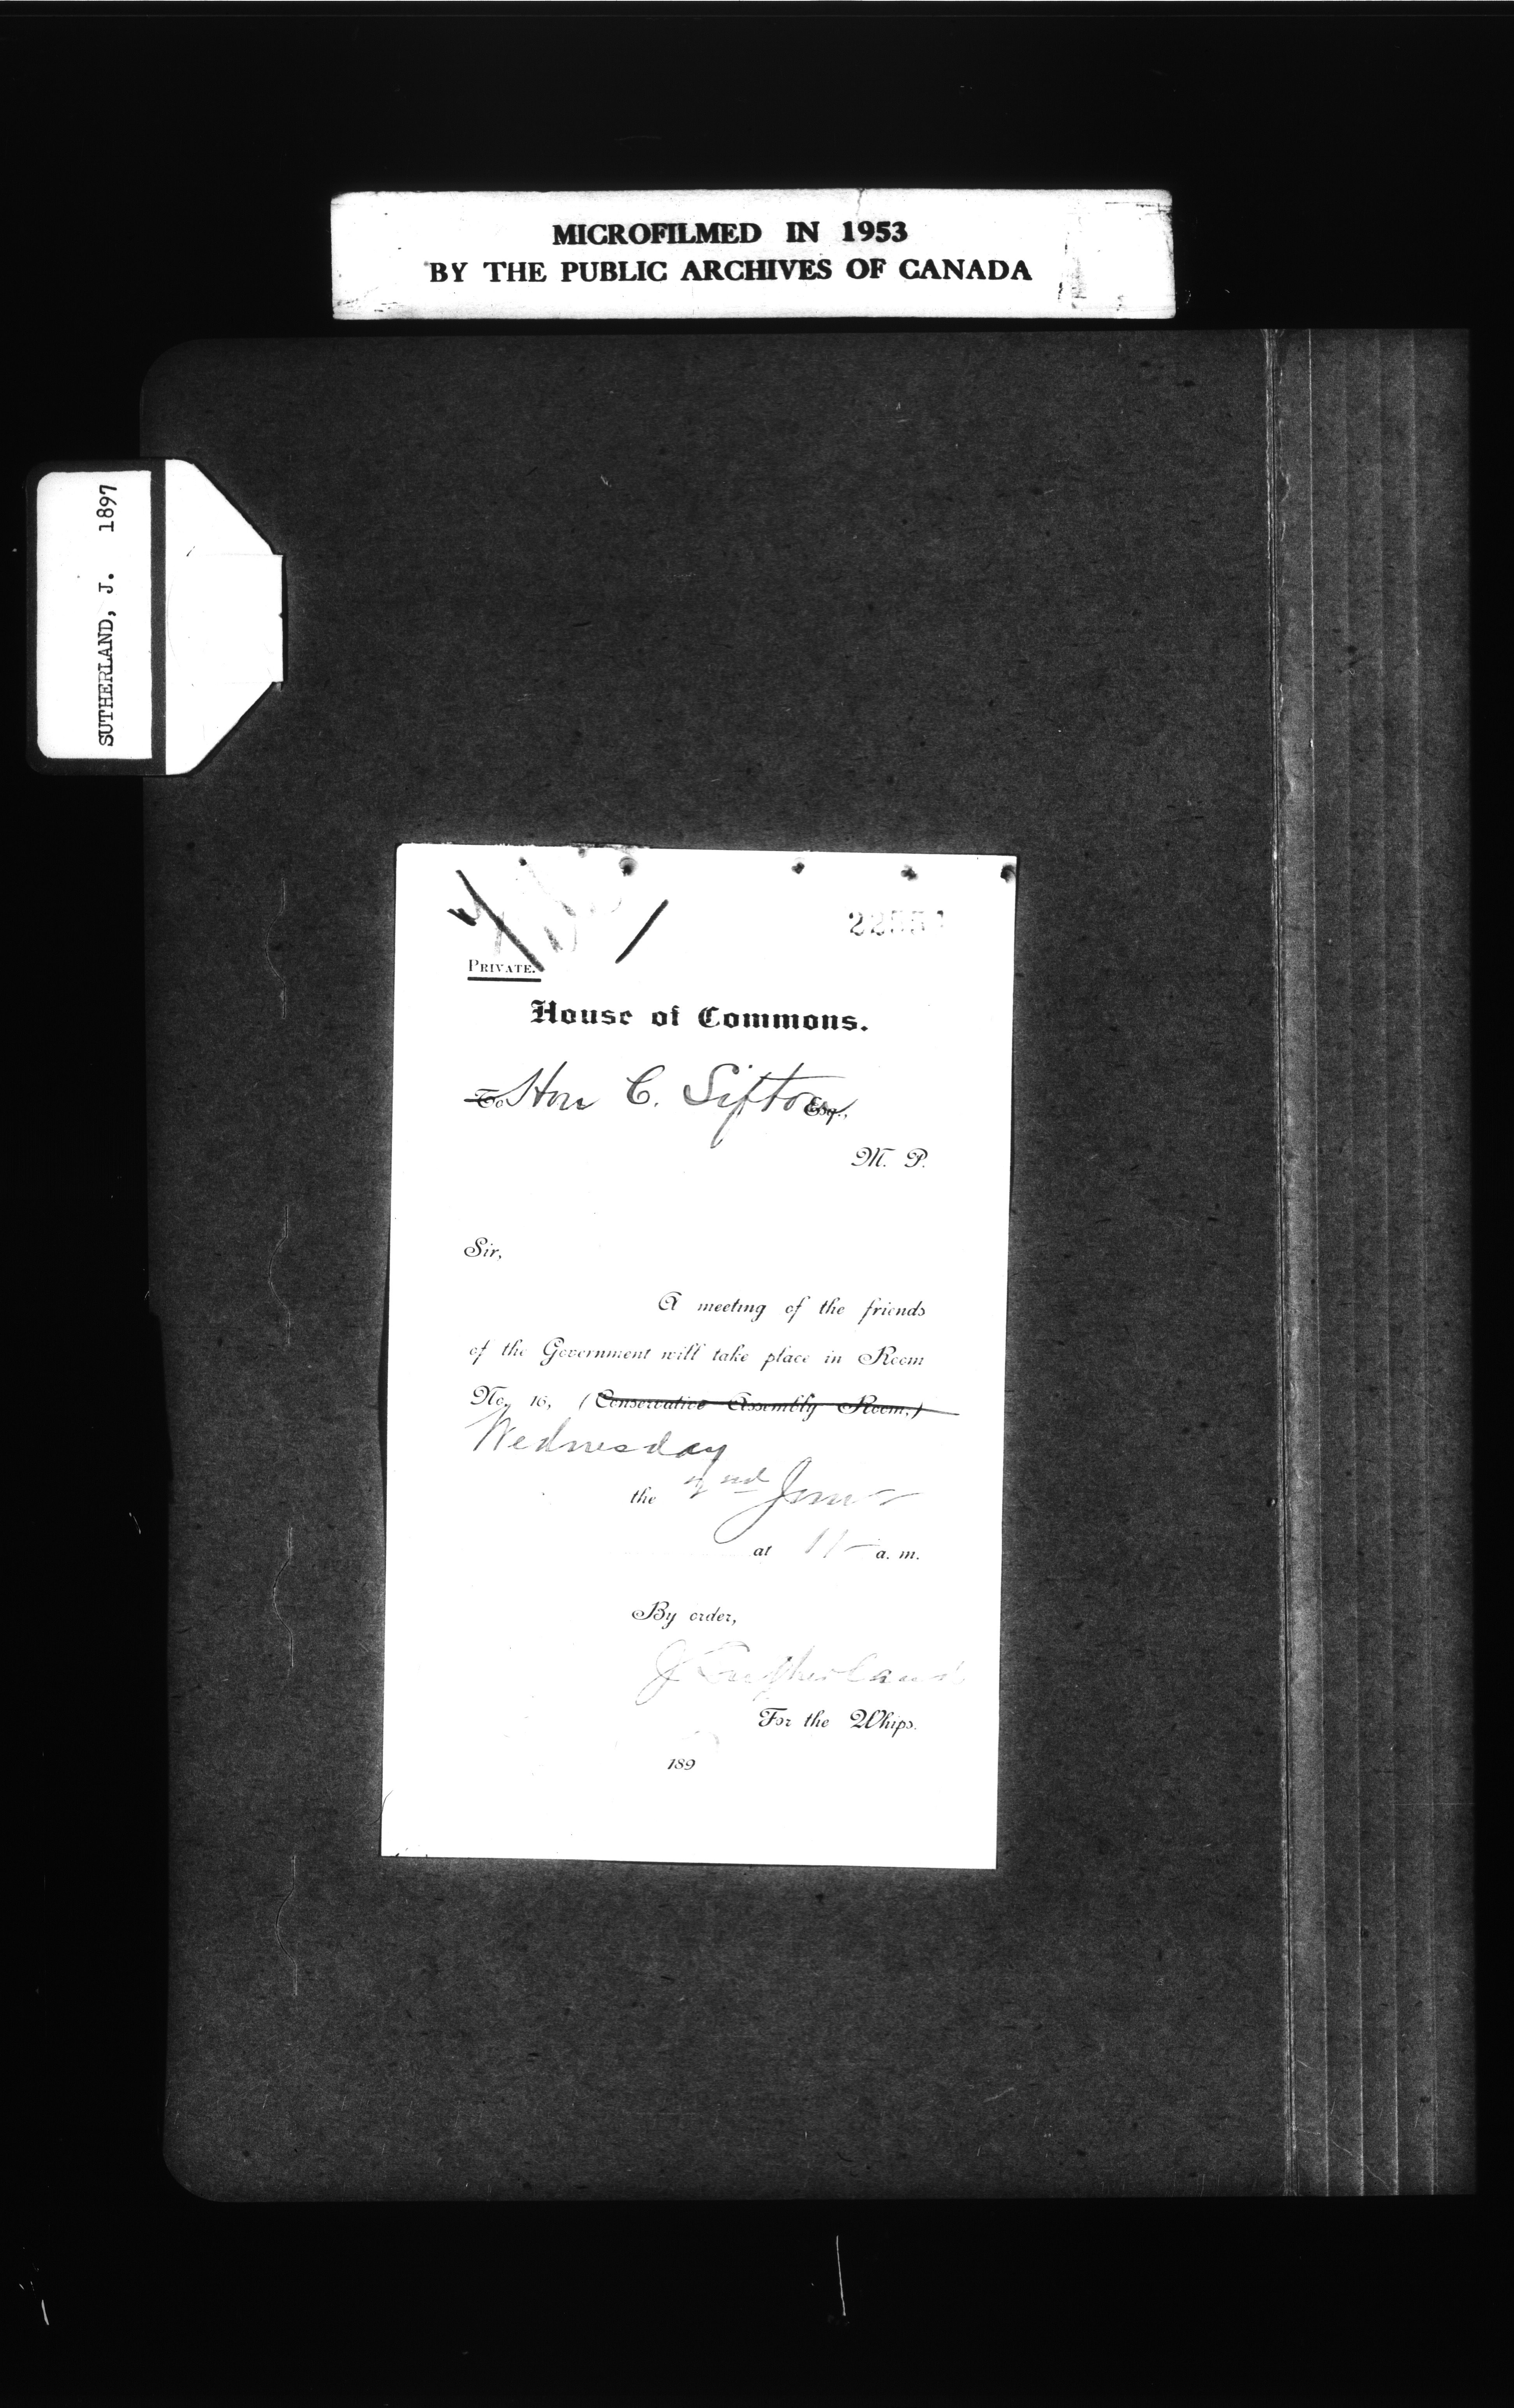 MICROFILMED IN 1953
BY THE PUBLIC ARCHIVES OF CANADA
SUTHERLAND, J. 1897
PRIVATE.
House of Commons.
To Hon C. Sifton Esq.,
M. P.
Sir,
A meeting of the friends
of the Government will take place in Room
No. 16, (Conservative Assembly Room,)
Wednesday
the 2nd June
at 11 a. m.
By order,
J Sutherland
For the Whips.
189